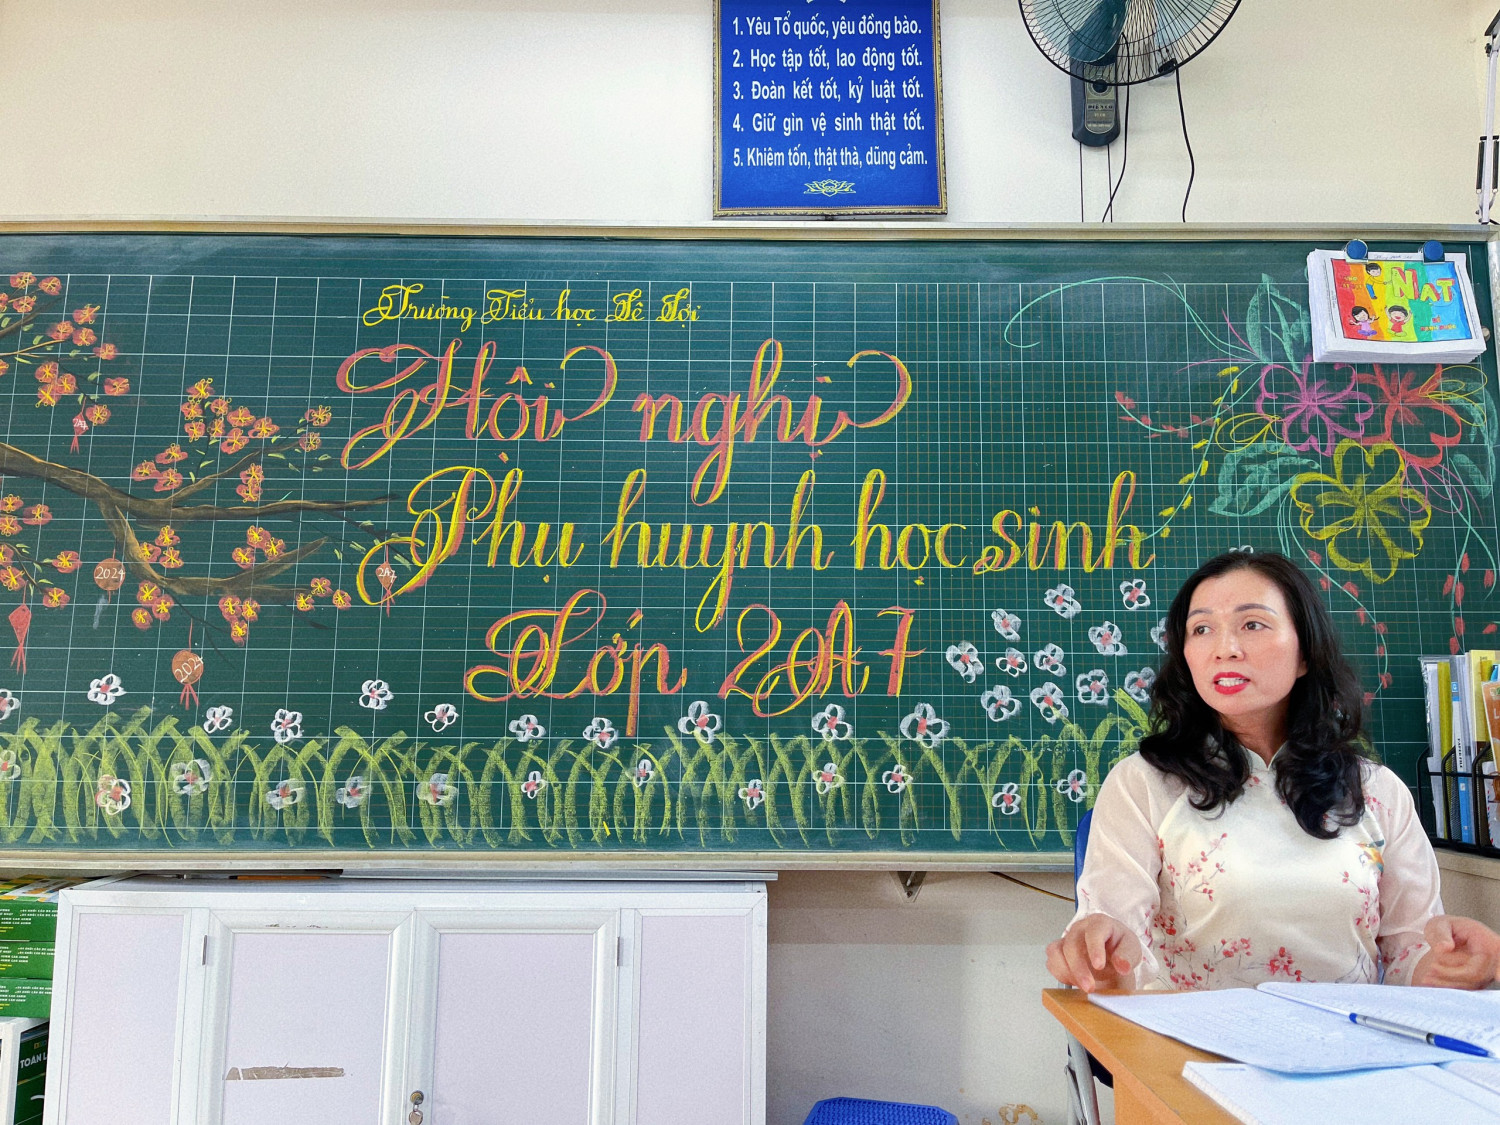 1. Yêu Tổ quốc, yêu đồng bào.
2. Học tập tốt, lao động tốt.
3. Đoàn kết tốt, kỷ luật tốt.
4. Giữ gìn vệ sinh thật tốt.
5. Khiêm tốn, thật thà, dũng cảm.
Trường Tiểu học Lê Lợi
Hội nghị
Phụ huynh học sinh
Lớp 2A7
2A7
2024
2A7
2024
NAT
TOÁN